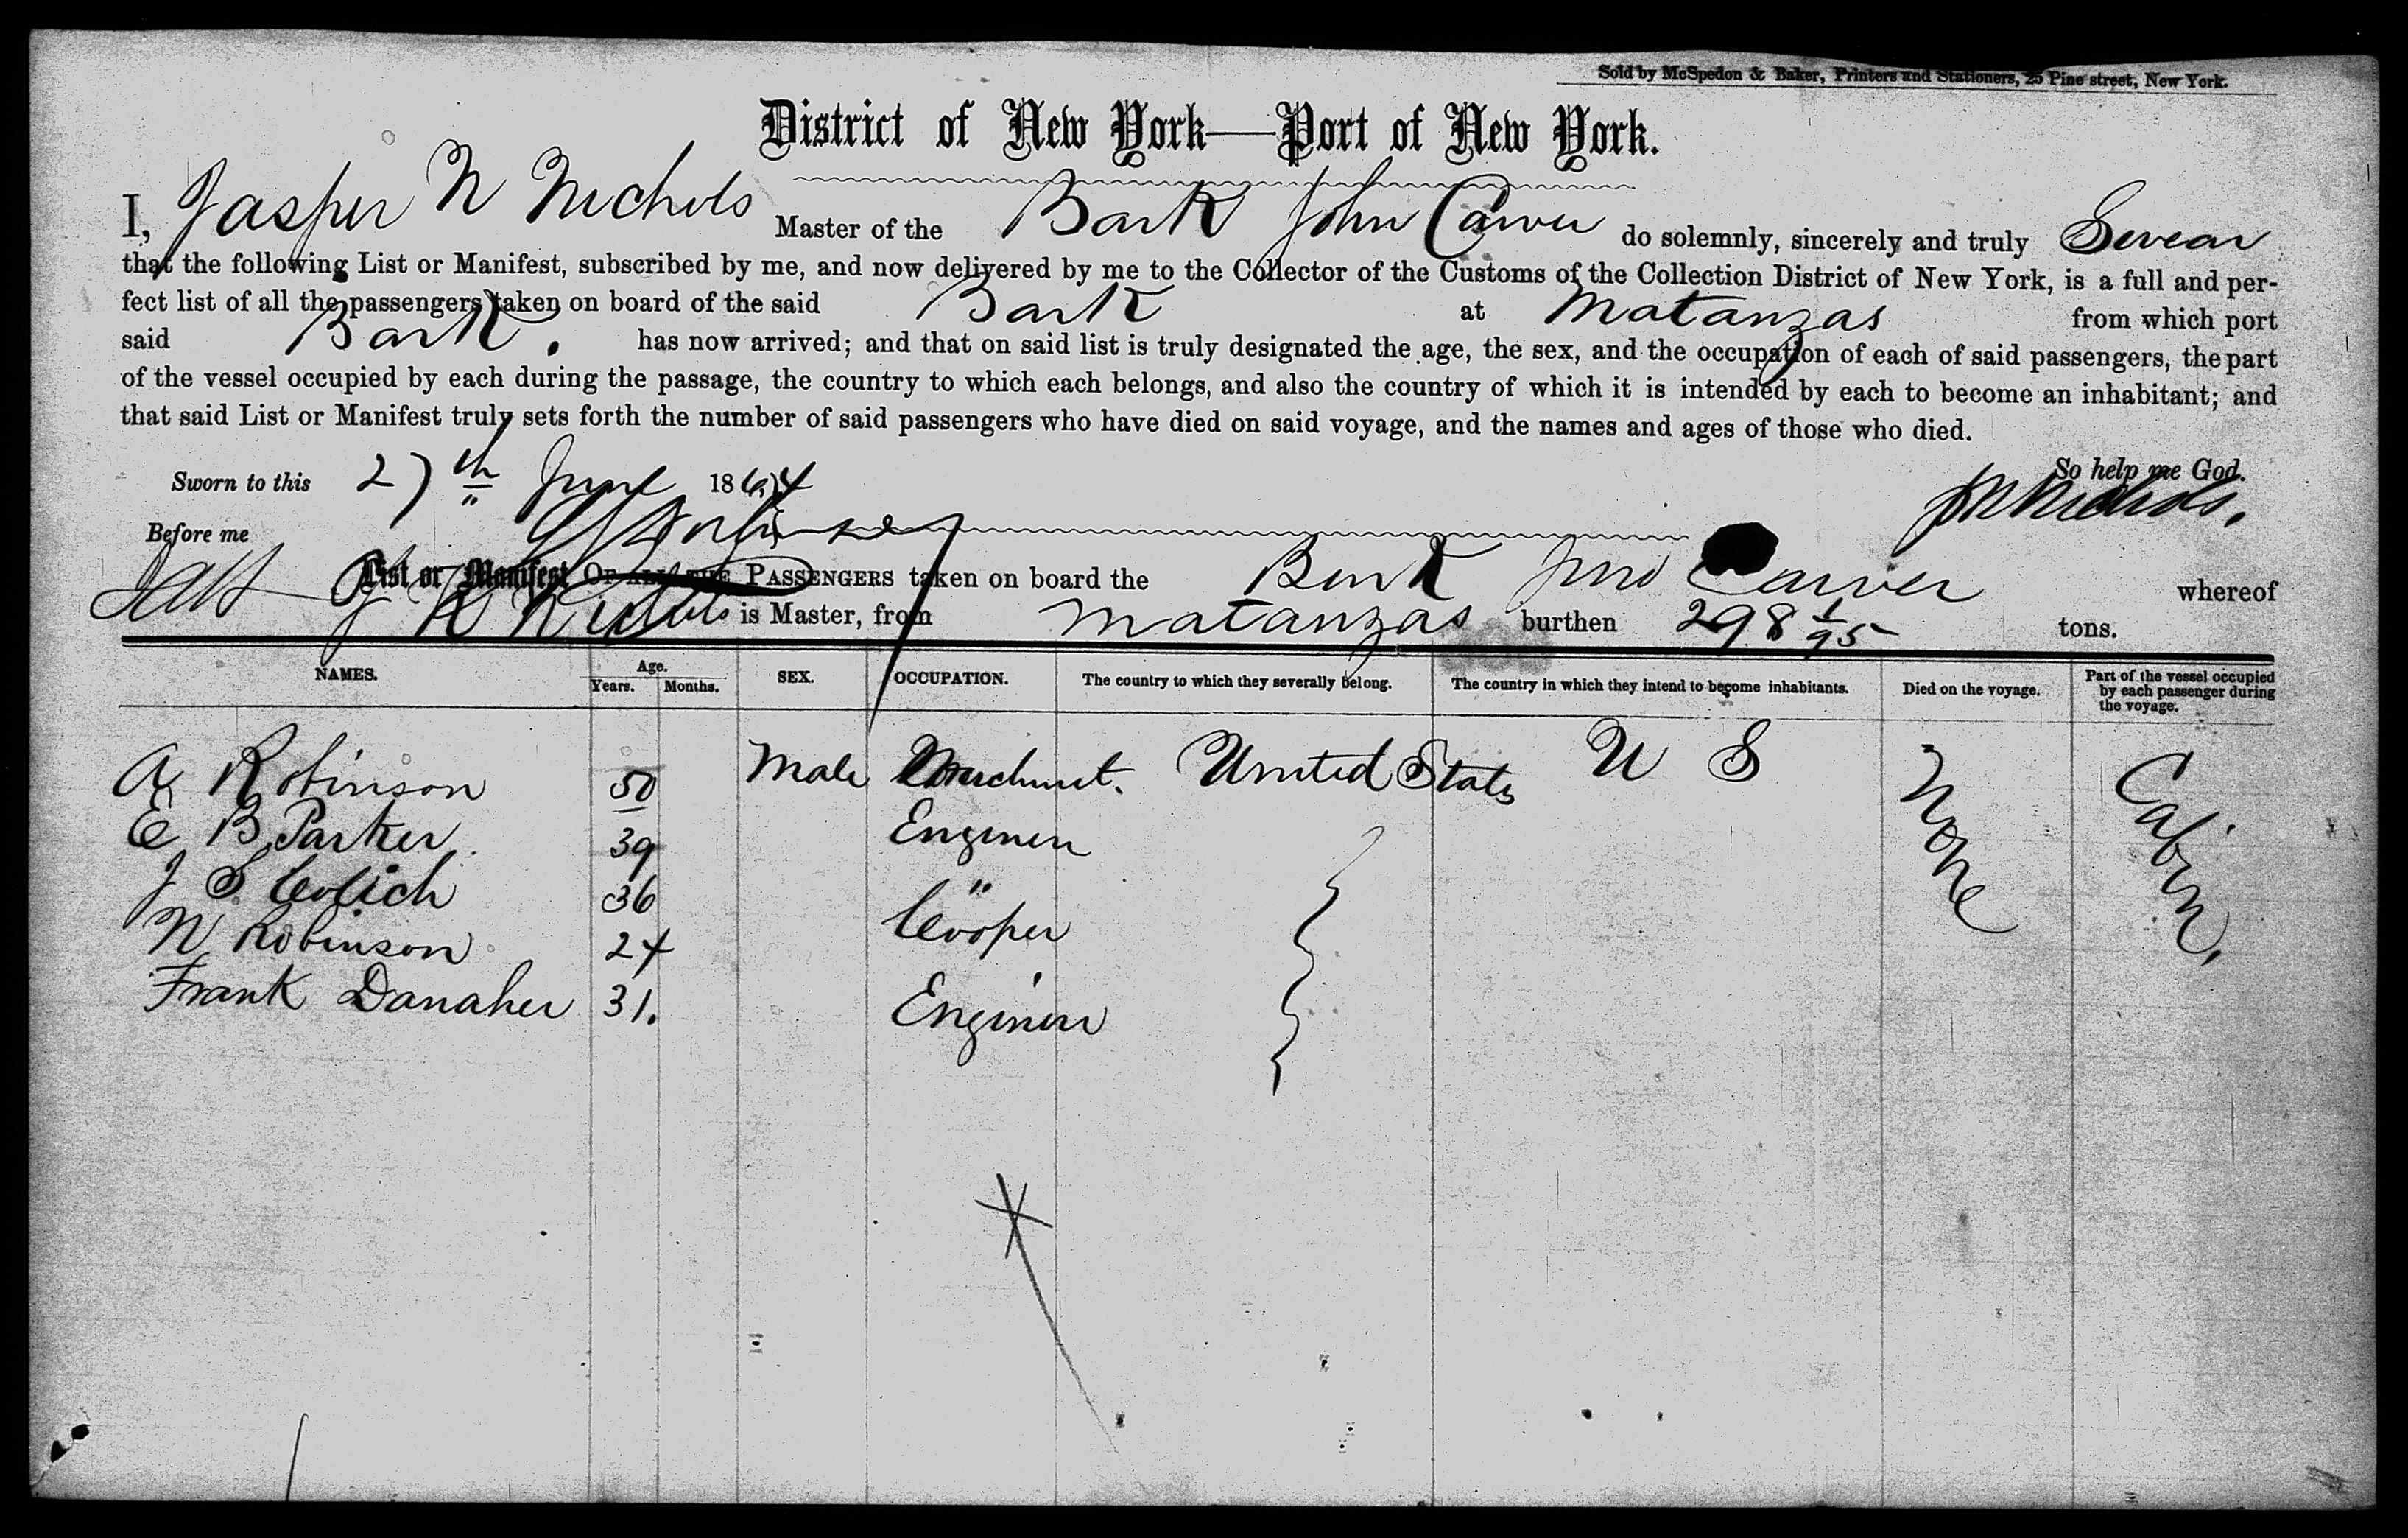 Sold by McSpedon & Baker, Printers and Stationers, 25 Pine street, New York.
District of New York—Port of New York.
I, Jasper N Nichols Master of the Bark John Carver do solemnly, sincerely and truly Swear
that the following List or Manifest, subscribed by me, and now delivered by me to the Collector of the Customs of the Collection District of New York, is a full and per-
fect list of all the passengers taken on board of the said Bark at Matanzas from which port
said Bark. has now arrived; and that on said list is truly designated the age, the sex, and the occupation of each of said passengers, the part
of the vessel occupied by each during the passage, the country to which each belongs, and also the country of which it is intended by each to become an inhabitant; and
that said List or Manifest truly sets forth the number of said passengers who have died on said voyage, and the names and ages of those who died.
Sworn to this 27th June 1864 So help me God.
Before me J N Nichols.
List or Manifest OF ALL THE PASSENGERS taken on board the Bark Jno Carver whereof
J N Nichols is Master, from Matanzas burthen 298 1/95 tons.
NAMES. Age. Years. Months. SEX. OCCUPATION. The country to which they severally belong. The country in which they intend to become inhabitants. Died on the voyage. Part of the vessel occupied by each passenger during the voyage.
A Robinson 50 Male Merchant. United States U S None Cabin.
E B Parker. 39 Engineer
J S 36 "
N Robinson 24 Cooper
Frank Danaher 31. Engineer